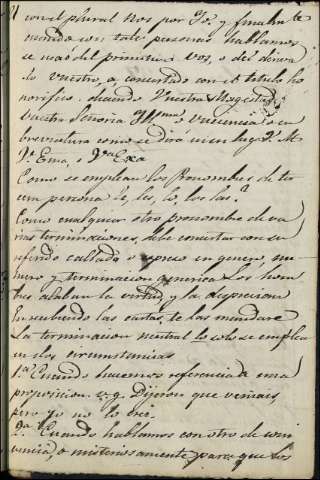 con el plural Nos por Yo. y finalm.te
cuando con tales personas hablamos
se usa del primitivo Vos, o del deriva
lo vuestro, o concertado con el titulo ho
norifico, diciendo Vuestra Magestad,
Vuestra Señoria Ill.ma o Vuecencia o en
brevnatura como se dirá V. M.
V.a Ema, o V.a Exa
Como se emplean los Pronombres de ter
cera persona le, les, lo, los las?
Como cualquier otro pronombre de va
rias terminaciones, debe concertar con su
referido callado o espreso en genero, nu
mero y terminacion generica Los hom
bres alaban la virtud, y la
En recibiendo las cartas te las mandaré
La terminacion neutral lo solo se emplea
en dos circunstancias
1.a Cuando hacemos referencia a una
proposicion v. g. Dijeron que veniais
pero yo no lo creí
2.a Cuando hablamos con otro de
o misteriosamente para que los